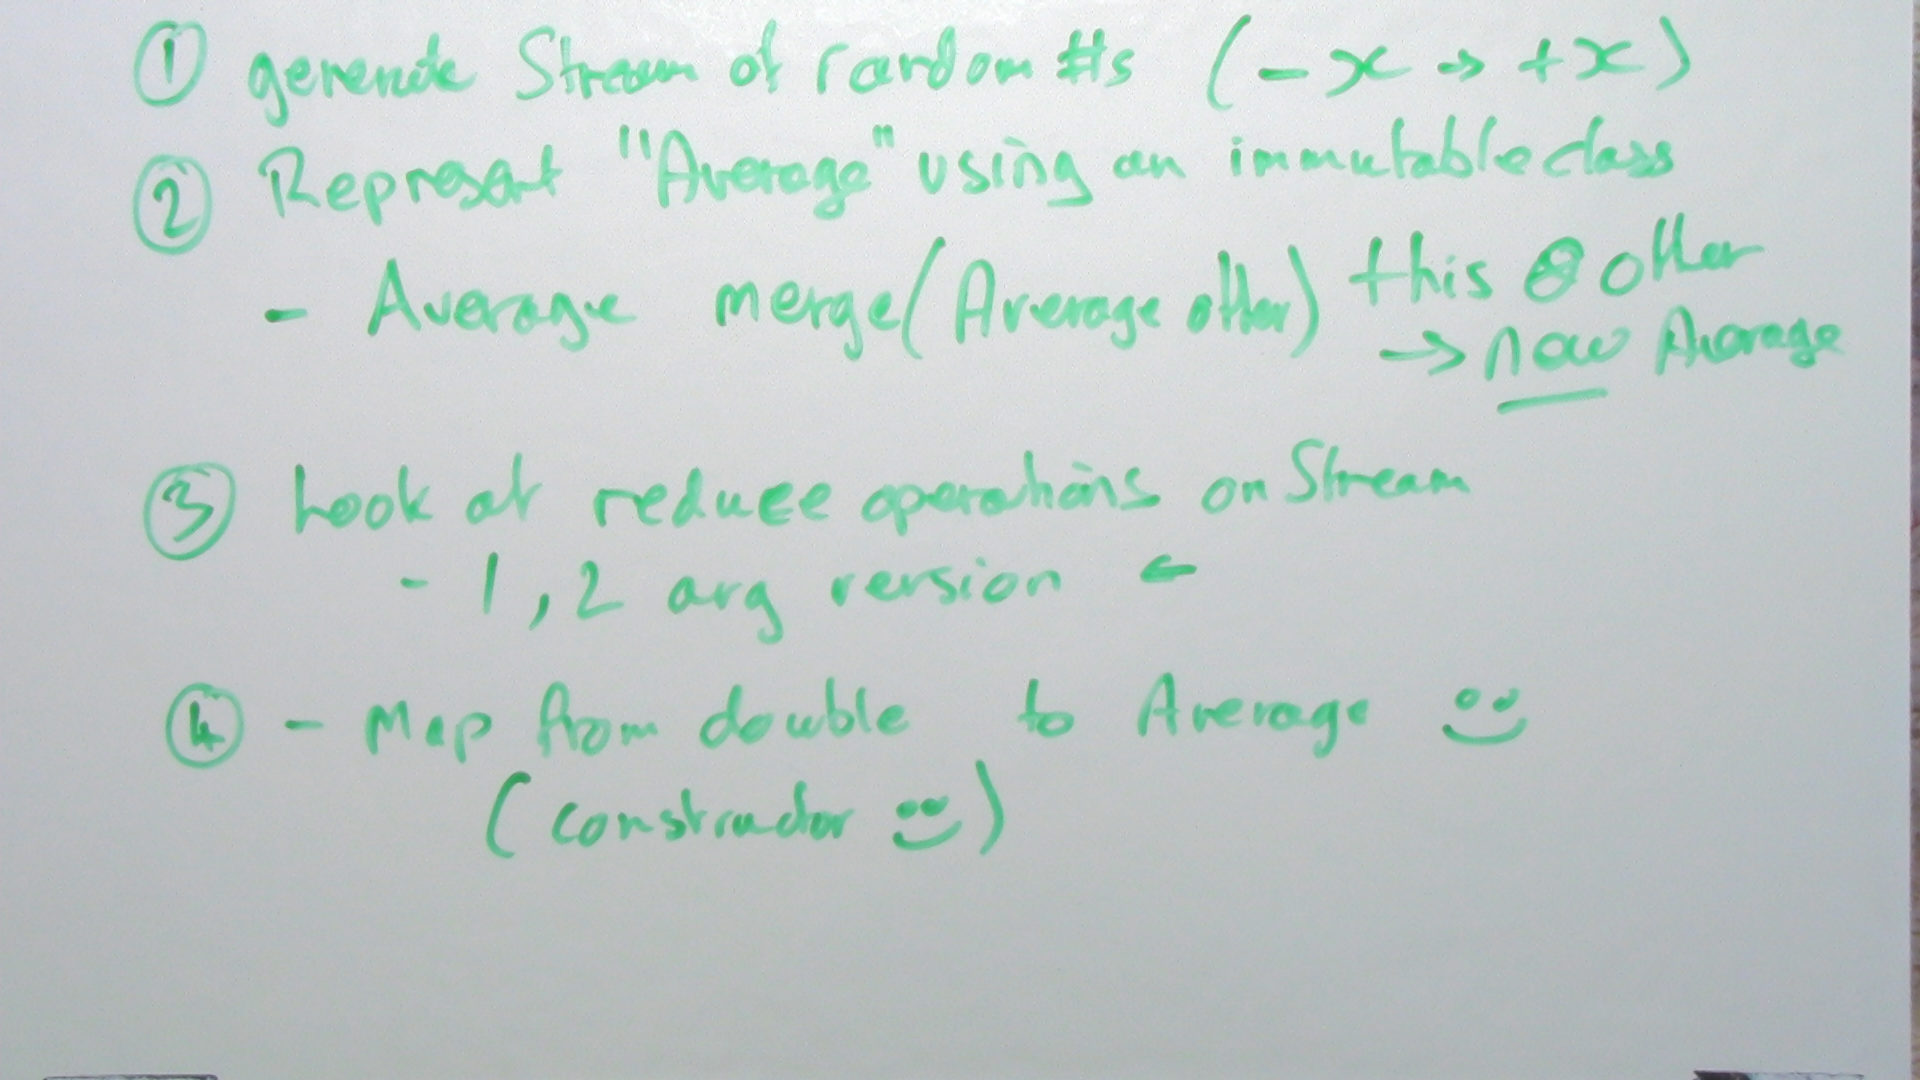 ① generate Stream of random #s (-x → +x)
② Represent "Average" using an immutable class
- Average merge(Average other) this & other
→ new Average
③ Look at reduce operations on Stream
- 1, 2 arg version ←
④ - Map from double to Average
(constructor )